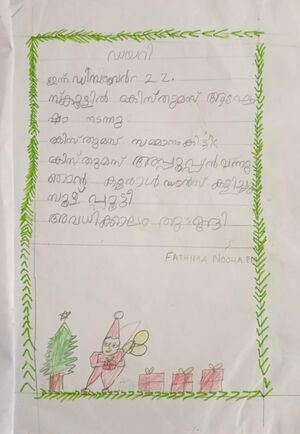 ഡയറി
ഇന്ന് ഡിസംബർ 22.
സ്കൂളിൽ ക്രിസ്തുമസ് ആഘോ
ഷം നടന്നു.
ക്രിസ്തുമസ് സമ്മാനം കിട്ടി
ക്രിസ്തുമസ് അപ്പൂപ്പൻ വന്നു
ഞാൻ കരോൾ ഡാൻസ് കളിച്ചു
സ്കൂൾ പൂട്ടി
അവധിക്കാലം തുടങ്ങി
FATHIMA NOOHA